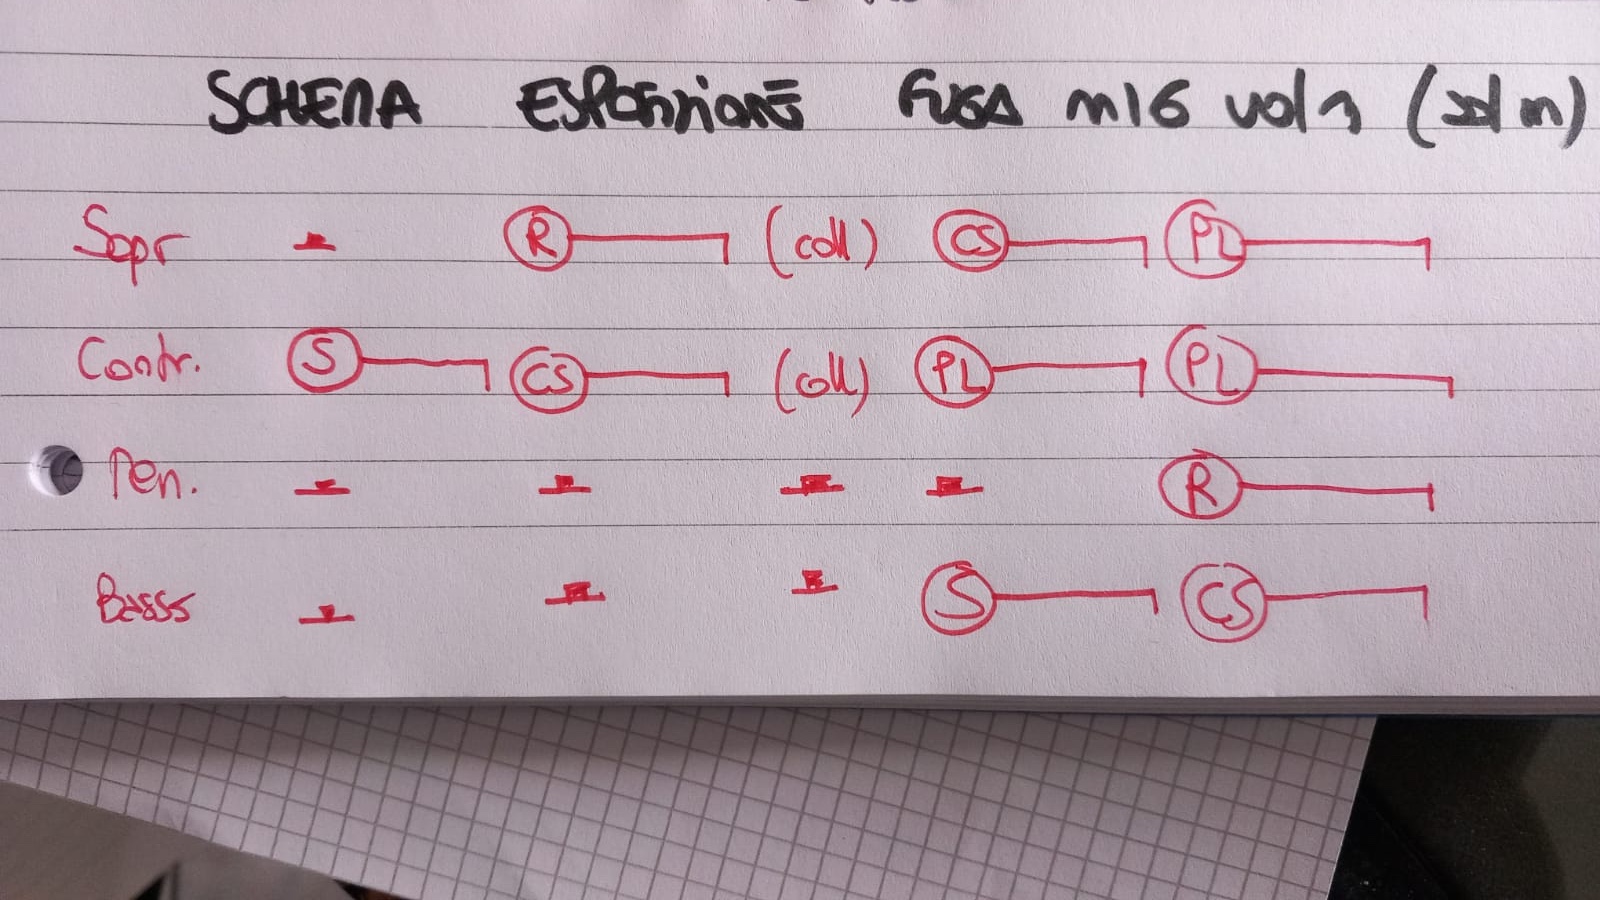 SCHEMA ESPOSIZIONE FUGA n16 vol 1 (sol m)
Sopr R (coll) CS PL
Contr. S CS (coll) PL PL
Ten. R
Basso S CS